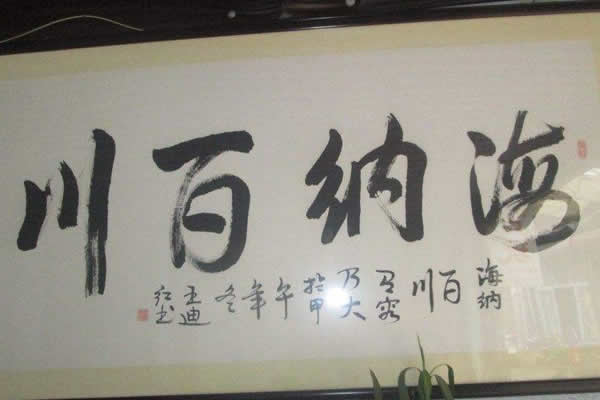 海纳百川
海纳百川有容乃大於甲午年冬王迪红书